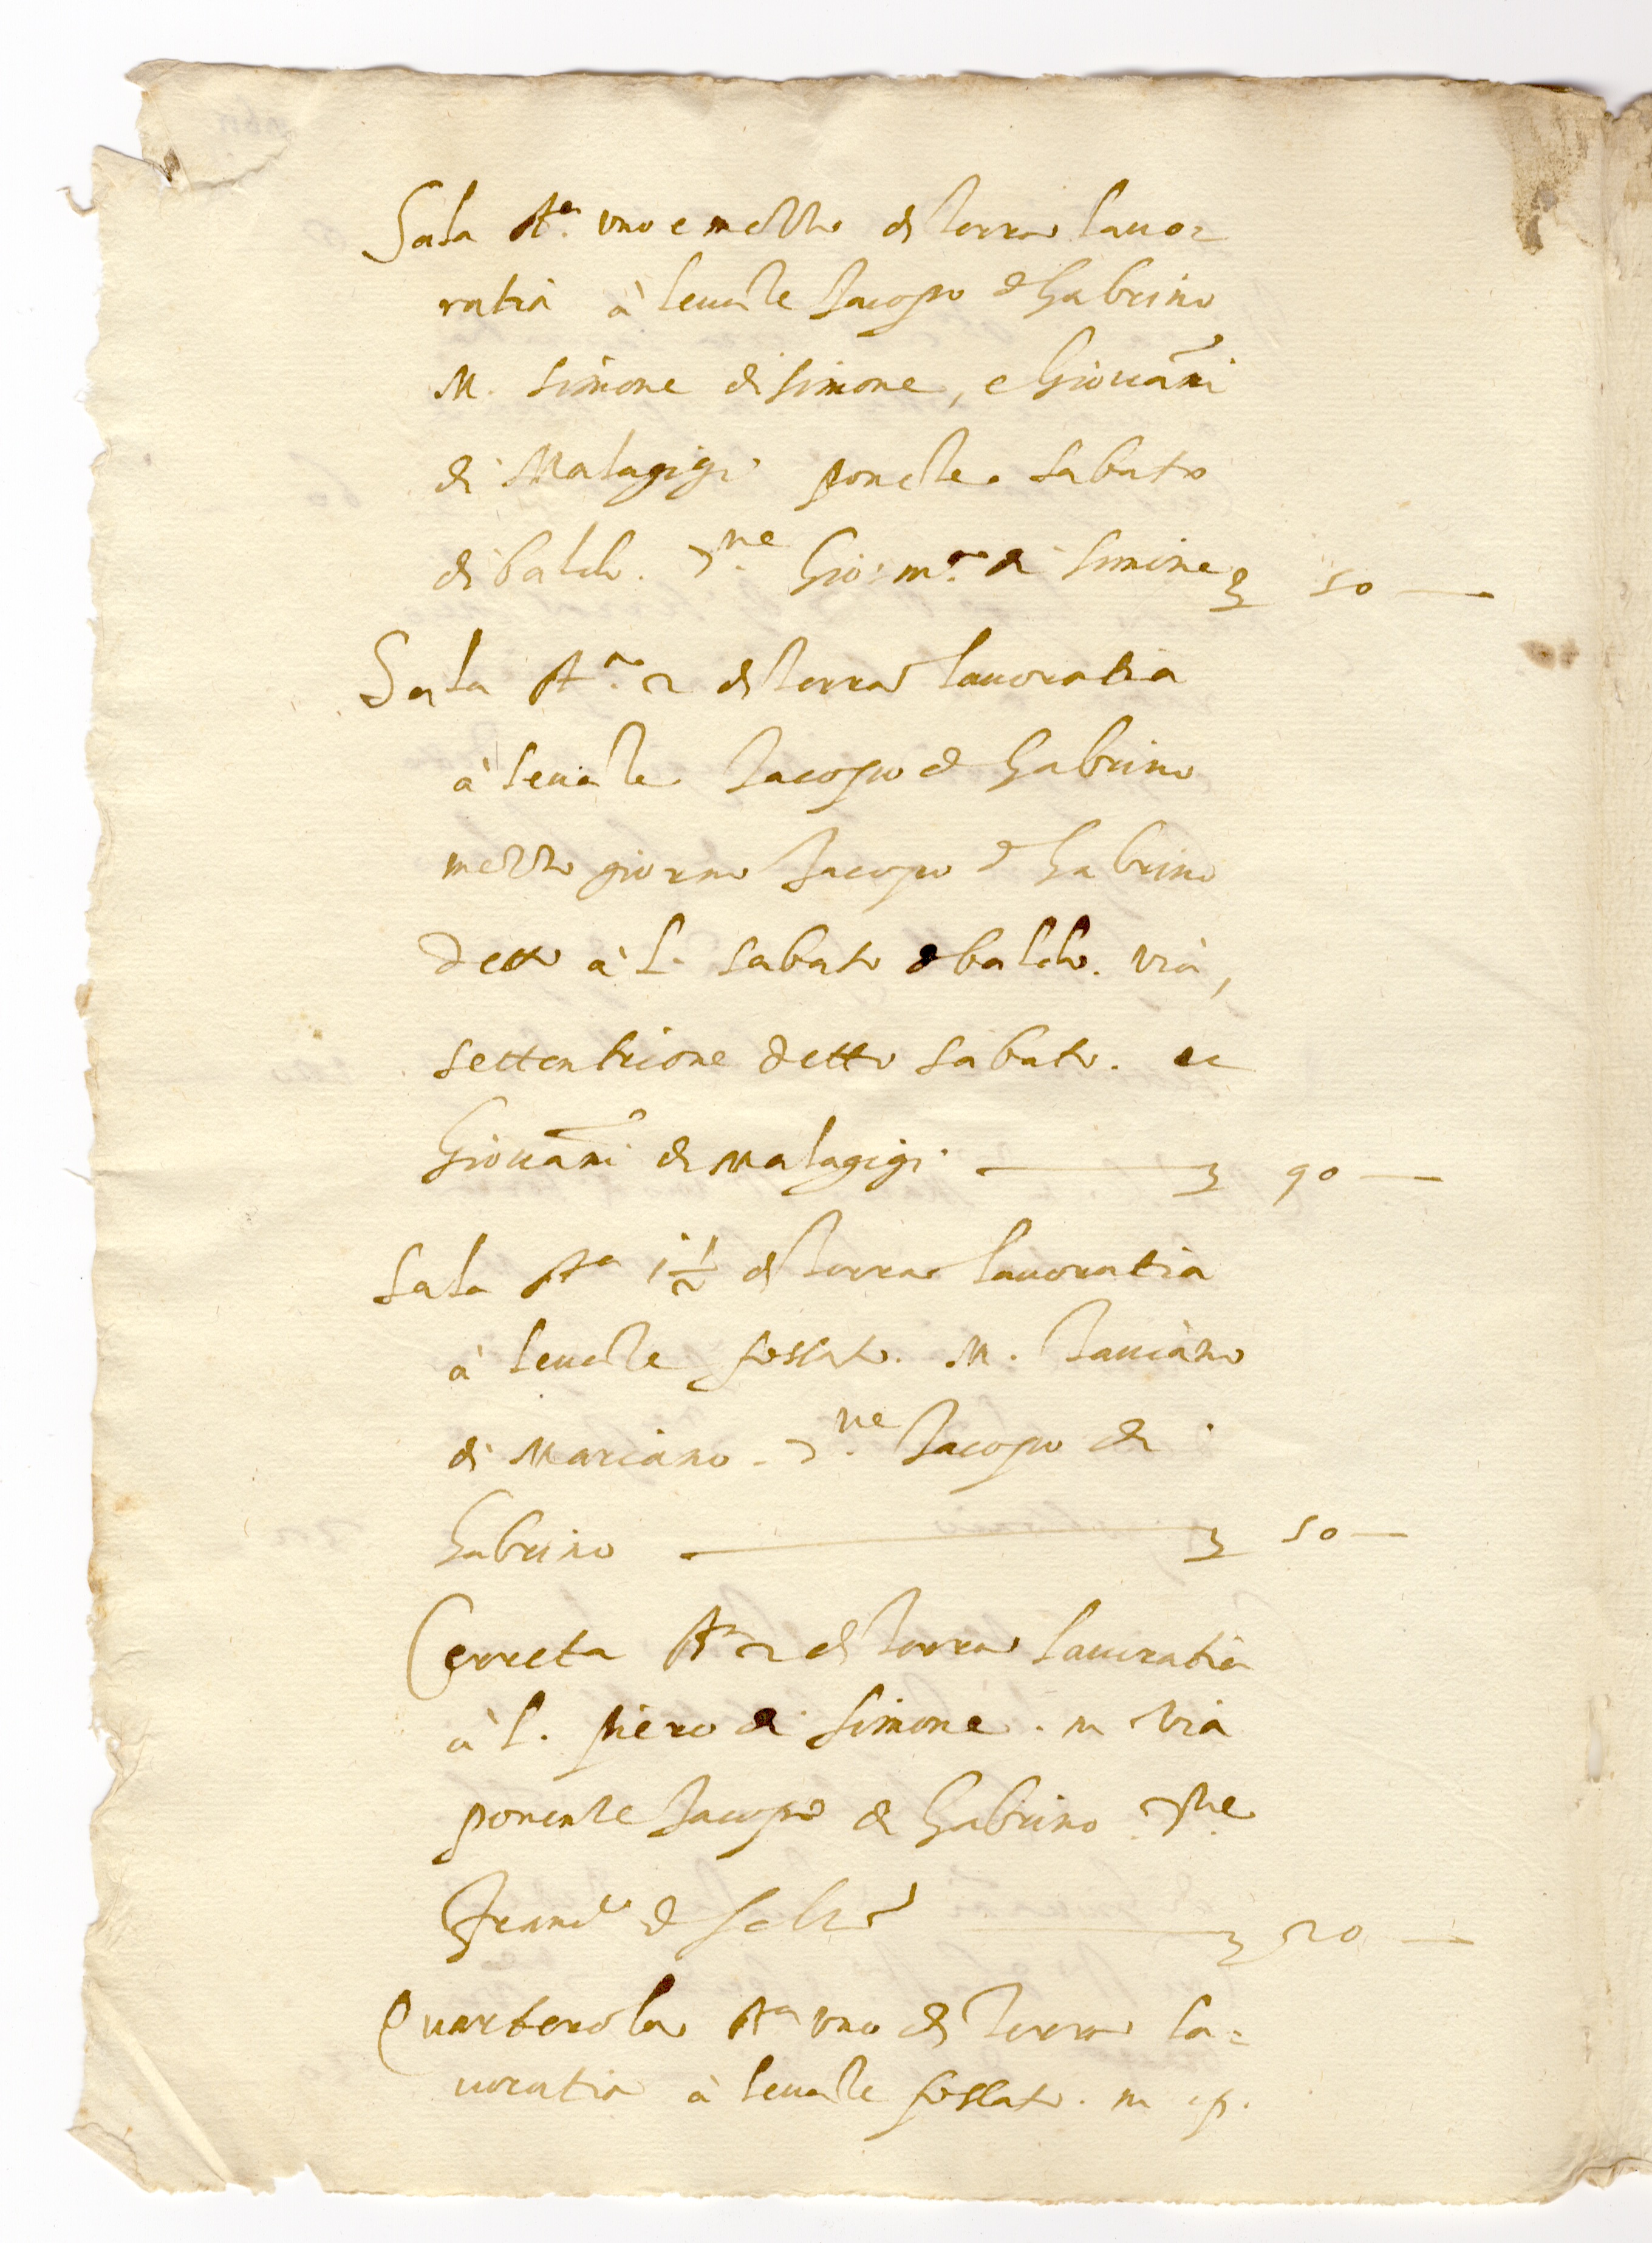 Sala St.ª uno e mezzo di terra lauo=
ratia à leuante Jacopo di Gabrino
M. Simone di Simone, e Giouãni
di Malagigi ponente. Sabato
di baldo. 7.ne Gio: m.ª di Simone 50 —
Sala St.ª 2 di terra lauoratia
à leuante Jacopo di Gabrino
mezzo giorno Jacopo di Gabrino
detto à L. Sabato di baldo. via,
settentrione detto Sabato. e
Giouãni di Malagigi — 90 —
Sala St.ª 1½ di terra lauoratia
à leuante fossato. M.
di Marciano. 7.ne Jacopo di
Gabrino — 50 —
Cerreta St.ª 2 di terra lauoratia
à L. Piero di Simone. m via
ponente Jacopo di Gabrino. 7.ne
Franc.º di — 20 —
Quarterola St.ª uno di terra la=
uoratia à leuante fossato. m e p.